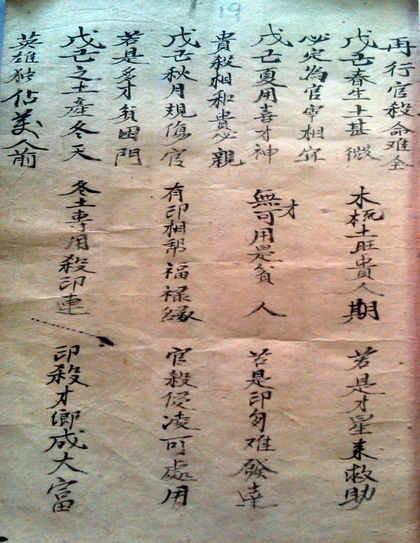 19
再行官殺命难全
戊己春生土甚微 木土旺貴人期 若是才星來救助
必定为官宰相宜
戊己夏用喜才神 無才可用是貧人 若是印难發達
貴殺相和貴必親
戊己秋月規傷官 有印相幇福禄緣 官殺侵凌可處用
若是多才貧困門
戊己之土產冬天 冬土專用殺印連 印殺才鄉成大富
英雄佔美人前